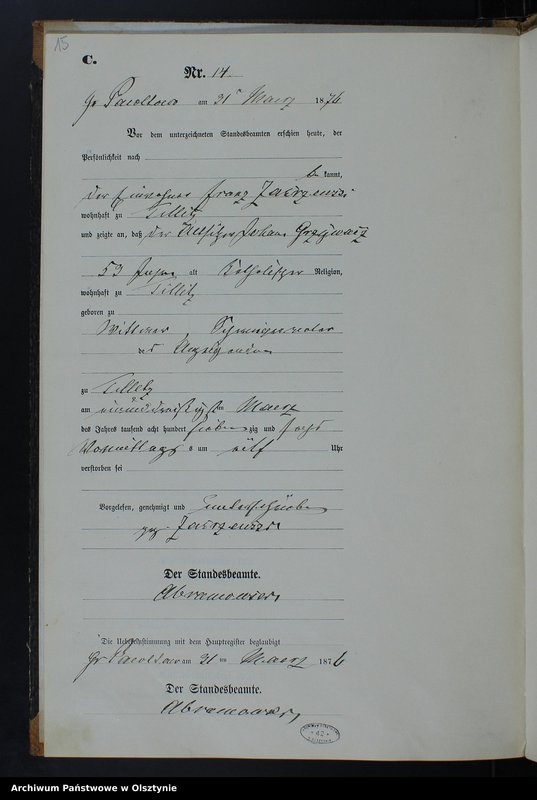 15
C.
Nr. 14
Gr Pacoltowo am 31 Maerz 1876
Vor dem unterzeichneten Standesbeamten erschien heute, der
Persönlichkeit nach
be kannt,
der Einwohner Franz
wohnhaft zu Tillitz
und zeigte an, daß der Altsitzer Johann
53 Jahre alt Katholischer Religion,
wohnhaft zu Tillitz
geboren zu
Wittwer, Schwiegervater
des Anzeigenden
zu Tillitz
am einunddreißigsten Maerz
des Jahres tausend acht hundert sieben zig und sechs
Vormittags um elf Uhr
verstorben sei
Vorgelesen, genehmigt und unterschrieben
gez.
Der Standesbeamte.
Abramowski
Die Uebereinstimmung mit dem Hauptregister beglaubigt
Gr Pacoltowo am 31 ten Maerz 1876
Der Standesbeamte.
Abramowski
42
Archiwum Państwowe w Olsztynie